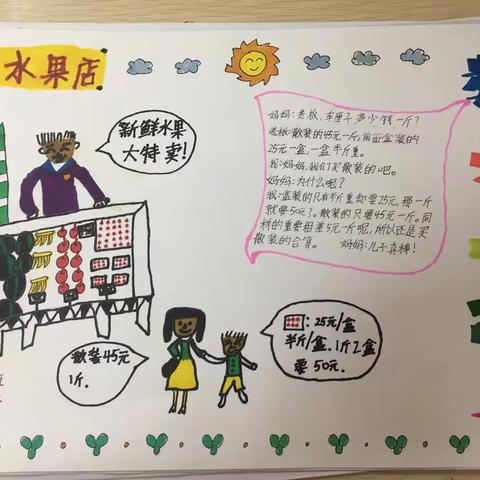 水果店
新鲜水果
大特卖!
妈妈:老板,车厘子多少钱一斤?
老板:散装的45元一斤,前面盒装的
25元一盒,一盒半斤重。
我:妈妈,我们买散装的吧。
妈妈:为什么呢?
我:盒装的只有半斤重却要25元,那一斤
就要50元?。散装的只要45元一斤。同
样的重要相差5元一斤呢,所以还是买
散装的合算。 妈妈:儿子真棒!
散装45元
1斤.
:25元/盒
半斤/盒.1斤2盒
要50元.